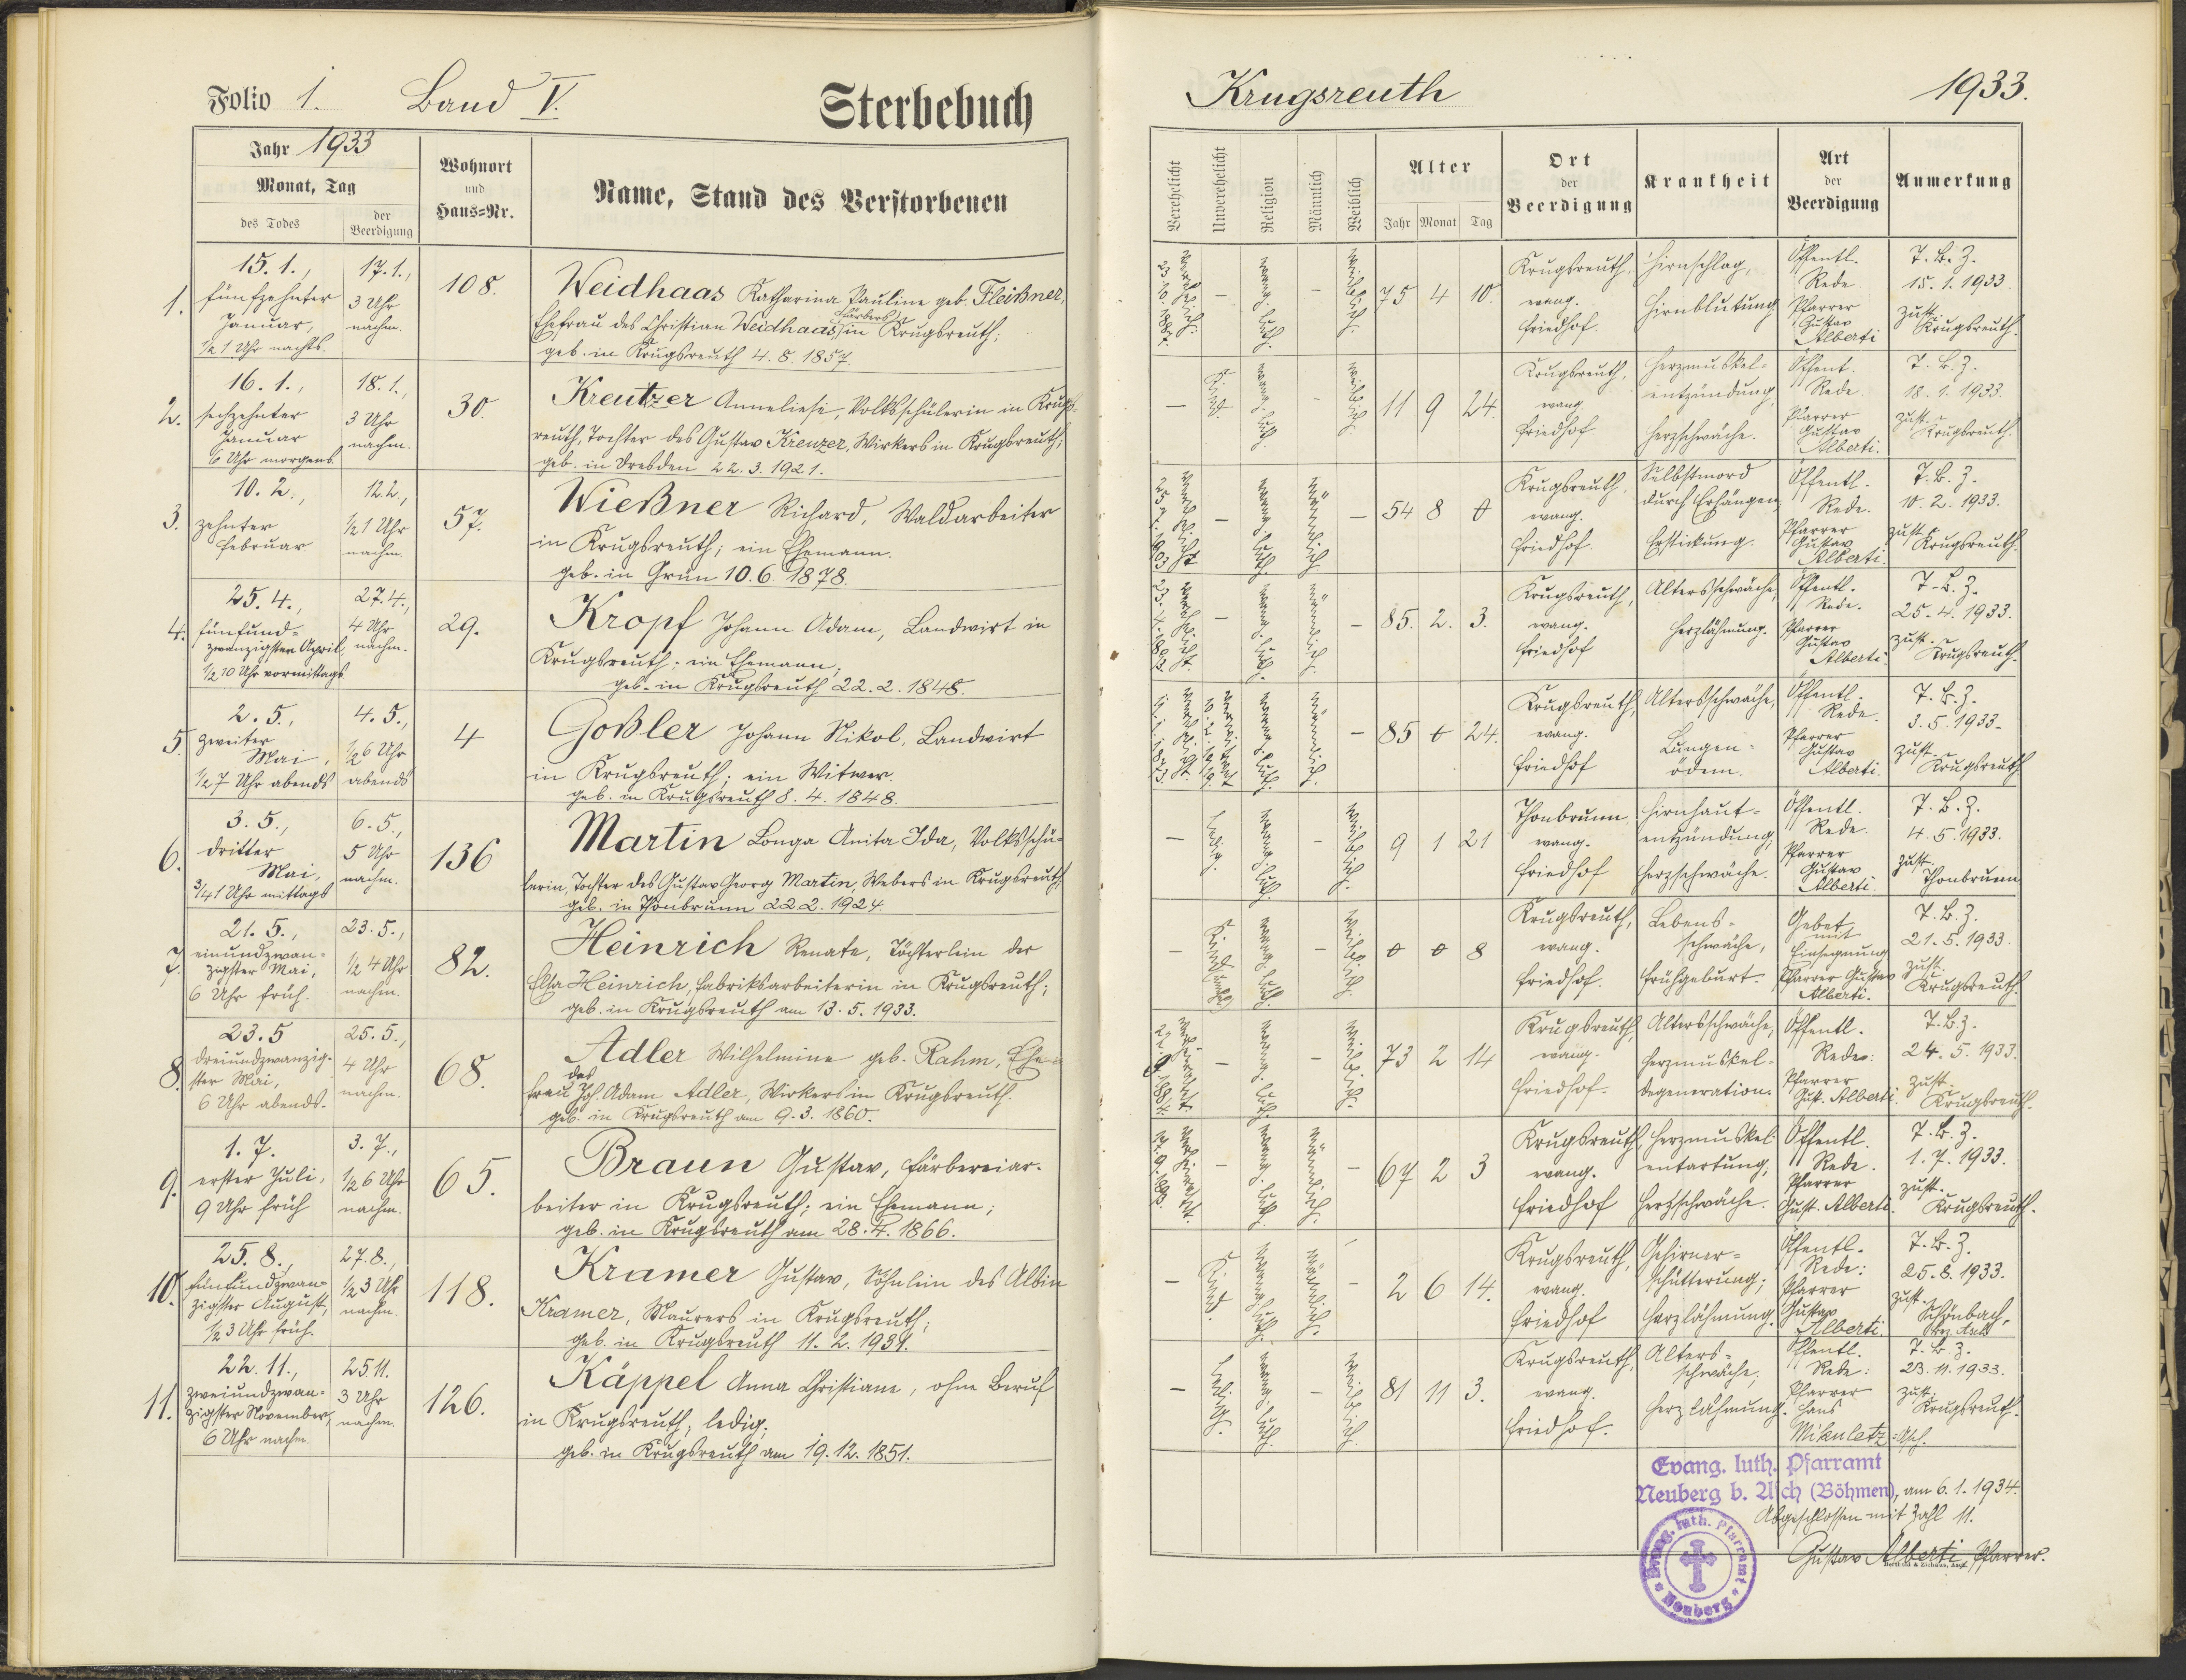 Folio 1. Band V. Sterbebuch
Jahr 1933
Monat, Tag
des Todes
der Beerdigung
Wohnort
und
Haus=Nr.
Name, Stand des Verstorbenen
1.
15. 1.,
fünfzehnter
Januar,
1/2 1 Uhr nachts.
17. 1.,
3 Uhr
nachm.
108.
Weidhaas Katharina Pauline geb. Fleißner,
Ehefrau des Christian Weidhaas, Färbers in Krugsreuth;
geb. in Krugsreuth 4. 8. 1857.
2.
16. 1.,
sechzehnter
Januar
6 Uhr morgens.
18. 1.,
3 Uhr
nachm.
30.
Kreutzer Anneliese, Volksschülerin in Krugs-
reuth, Tochter des Gustav Kreuzer, Wirkers in Krugsreuth;
geb. in Dresden 22. 3. 1921.
3.
10. 2.,
zehnter
Februar
12. 2.,
1/2 1 Uhr
nachm.
57.
Wießner Richard, Waldarbeiter
in Krugsreuth; ein Ehemann.
geb. in Grün 10. 6. 1878.
4.
25. 4.,
fünfund=
zwanzigsten April,
1/2 10 Uhr vormittags
27. 4.,
4 Uhr
nachm.
29.
Kropf Johann Adam, Landwirt in
Krugsreuth; ein Ehemann;
geb. in Krugsreuth 22. 2. 1848.
5.
2. 5.,
zweiter
Mai,
1/2 7 Uhr abends
4. 5.,
1/2 6 Uhr
abends
4
Goßler Johann Nikol, Landwirt
in Krugsreuth; ein Witwer.
geb. in Krugsreuth 8. 4. 1848.
6.
3. 5.,
dritter
Mai,
3/4 1 Uhr mittags
6. 5.,
5 Uhr
nachm.
136
Martin Longa Anita Ida, Volksschü-
lerin, Tochter des Gustav Georg Martin, Webers in Krugsreuth;
geb. in Thonbrunn 22. 2. 1924.
7.
21. 5.,
einundzwan=
zigster Mai,
6 Uhr früh.
23. 5.,
1/2 4 Uhr
nachm.
82.
Heinrich Renate, Töchterlein der
Elsa Heinrich, Fabriksarbeiterin in Krugsreuth;
geb. in Krugsreuth am 13. 5. 1933.
8.
23. 5
dreiundzwanzig-
ster Mai,
6 Uhr abends.
25. 5.,
4 Uhr
nachm.
68.
Adler Wilhelmine geb. Rahm, Ehe=
frau des Joh. Adam Adler, Wirkers in Krugsreuth.
geb. in Krugsreuth am 9. 3. 1860.
9.
1. 7.
erster Juli,
9 Uhr früh
3. 7.,
1/2 6 Uhr
nachm.
65.
Braun Gustav, Färbereiar-
beiter in Krugsreuth; ein Ehemann;
geb. in Krugsreuth am 28. 4. 1866.
10.
25. 8.,
fünfundzwan=
zigster August,
1/2 3 Uhr früh.
27. 8.,
1/2 3 Uhr
nachm.
118.
Kramer Gustav, Söhnlein des Albin
Kramer, Maurers in Krugsreuth;
geb. in Krugsreuth 11. 2. 1931.
11.
22. 11.,
zweiundzwan=
zigster November,
6 Uhr nachm.
25. 11.
3 Uhr
nachm.
126.
Käppel Anna Christiane, ohne Beruf
in Krugsreuth; ledig;
geb. in Krugsreuth am 19. 12. 1851.
Krugsreuth 1933.
Verehelicht
Unverehelicht
Religion
Männlich
Weiblich
Alter
Jahr Monat Tag
Ort
der
Beerdigung
Krankheit
Art
der
Beerdigung
Anmerkung
evang. luth.
weiblich.
75 4 10.
Krugsreuth,
evang.
Friedhof.
Hirnschlag,
Hirnblutung.
Öffentl.
Rede.
Pfarrer
Gustav
Alberti
T. B. Z.
15. 1. 1933.
zust.
Krugsreuth.
Kind
evang. luth
weiblich.
11 9 24.
Krugsreuth,
evang.
Friedhof
Herzmuskel=
entzündung,
Herzschwäche.
Öffent.
Rede.
Pfarrer
Gustav
Alberti.
T. B. Z.
18. 1. 1933.
zust.
Krugsreuth.
evang. luth.
männlich.
54 8 0
Krugsreuth,
evang.
Friedhof.
Selbstmord
durch Erhängen;
Erstickung.
Öffentl.
Rede.
Pfarrer
Gustav
Alberti.
T. B. Z.
10. 2. 1933.
zust.
Krugsreuth.
evang. luth.
männlich.
85. 2. 3.
Krugsreuth,
evang.
Friedhof
Altersschwäche,
Herzlähmung.
Öffentl.
Rede.
Pfarrer
Gustav
Alberti.
T. B. Z.
25. 4. 1933.
zust.
Krugsreuth.
evang. luth.
männlich.
85 0 24.
Krugsreuth,
evang.
Friedhof
Altersschwäche,
Lungen=
ödem.
Öffentl.
Rede.
Pfarrer
Gustav
Alberti.
T. B. Z.
3. 5. 1933.
zust.
Krugsreuth.
ledig.
evang. luth.
weiblich.
9 1 21
Thonbrunn
evang.
Friedhof
Hirnhaut=
entzündung;
Herzschwäche.
Öffentl.
Rede.
Pfarrer
Gustav
Alberti.
T. B. Z.
4. 5. 1933.
zust.
Thonbrunn
Kind
evang. luth.
weiblich.
0 0 8
Krugsreuth,
evang.
Friedhof.
Lebens=
schwäche,
Frühgeburt.
Gebet
mit
Einsegnung
Pfarrer Gustav
Alberti.
T. B. Z.
21. 5. 1933.
zust.
Krugsreuth.
evang. luth.
weiblich.
73 2 14
Krugsreuth,
evang.
Friedhof.
Altersschwäche,
Herzmuskel-
degeneration.
Öffentl.
Rede:
Pfarrer
Gust. Alberti.
T. B. Z.
24. 5. 1933.
zust.
Krugsreuth.
evang. luth.
männlich.
67 2 3
Krugsreuth,
evang.
Friedhof
Herzmuskel-
entartung;
Herzschwäche.
Öffentl.
Rede.
Pfarrer
Gust. Alberti.
T. B. Z.
1. 7. 1933.
zust.
Krugsreuth.
Kind.
evang. luth.
männlich.
2 6 14.
Krugsreuth,
evang.
Friedhof
Gehirner=
schütterung;
Herzlähmung.
Öffentl.
Rede:
Pfarrer
Gustav
Alberti.
T. B. Z.
25. 8. 1933.
zust.
Schönbach,
Bez. Asch
ledig.
evang. luth.
weiblich.
81 11 3.
Krugsreuth,
evang.
Friedhof.
Alters=
schwäche;
Herzlähmung.
Öffentl.
Rede:
Pfarrer
Hans
Mikuletz=Asch.
T. B. Z.
23. 11. 1933.
zust.
Krugsreuth.
Evang. luth. Pfarramt
Neuberg b. Asch (Böhmen), am 6. 1. 1934.
Abgeschlossen mit Zahl 11.
Gustav Alberti, Pfarrer.
Evang. luth. Pfarramt
Neuberg